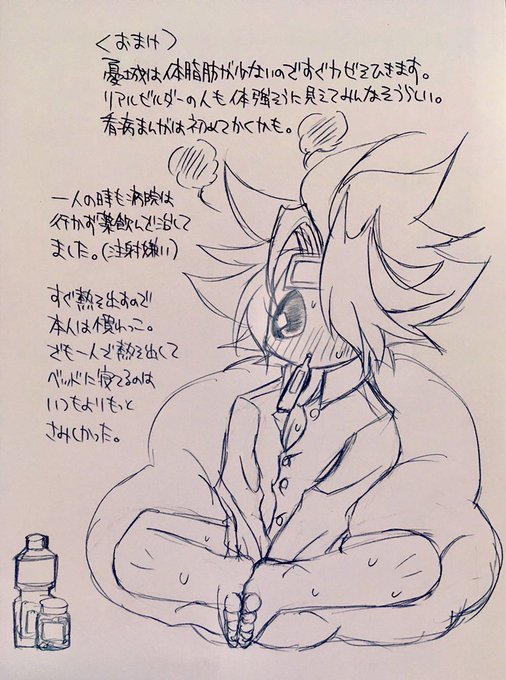 〈おまけ〉
憂城は体脂肪が少ないのですぐカゼをひきます。
リアルビルダーの人も体強そうに見えてみんなそうらしい。
看病まんがは初めてかくかも。
一人の時も病院は
行かず薬飲んで治して
ました。(注射嫌い)
すぐ熱を出すので
本人は慣れっこ。
でも一人で熱を出して
ベッドに寝てるのは
いつもよりもっと
さみしかった。